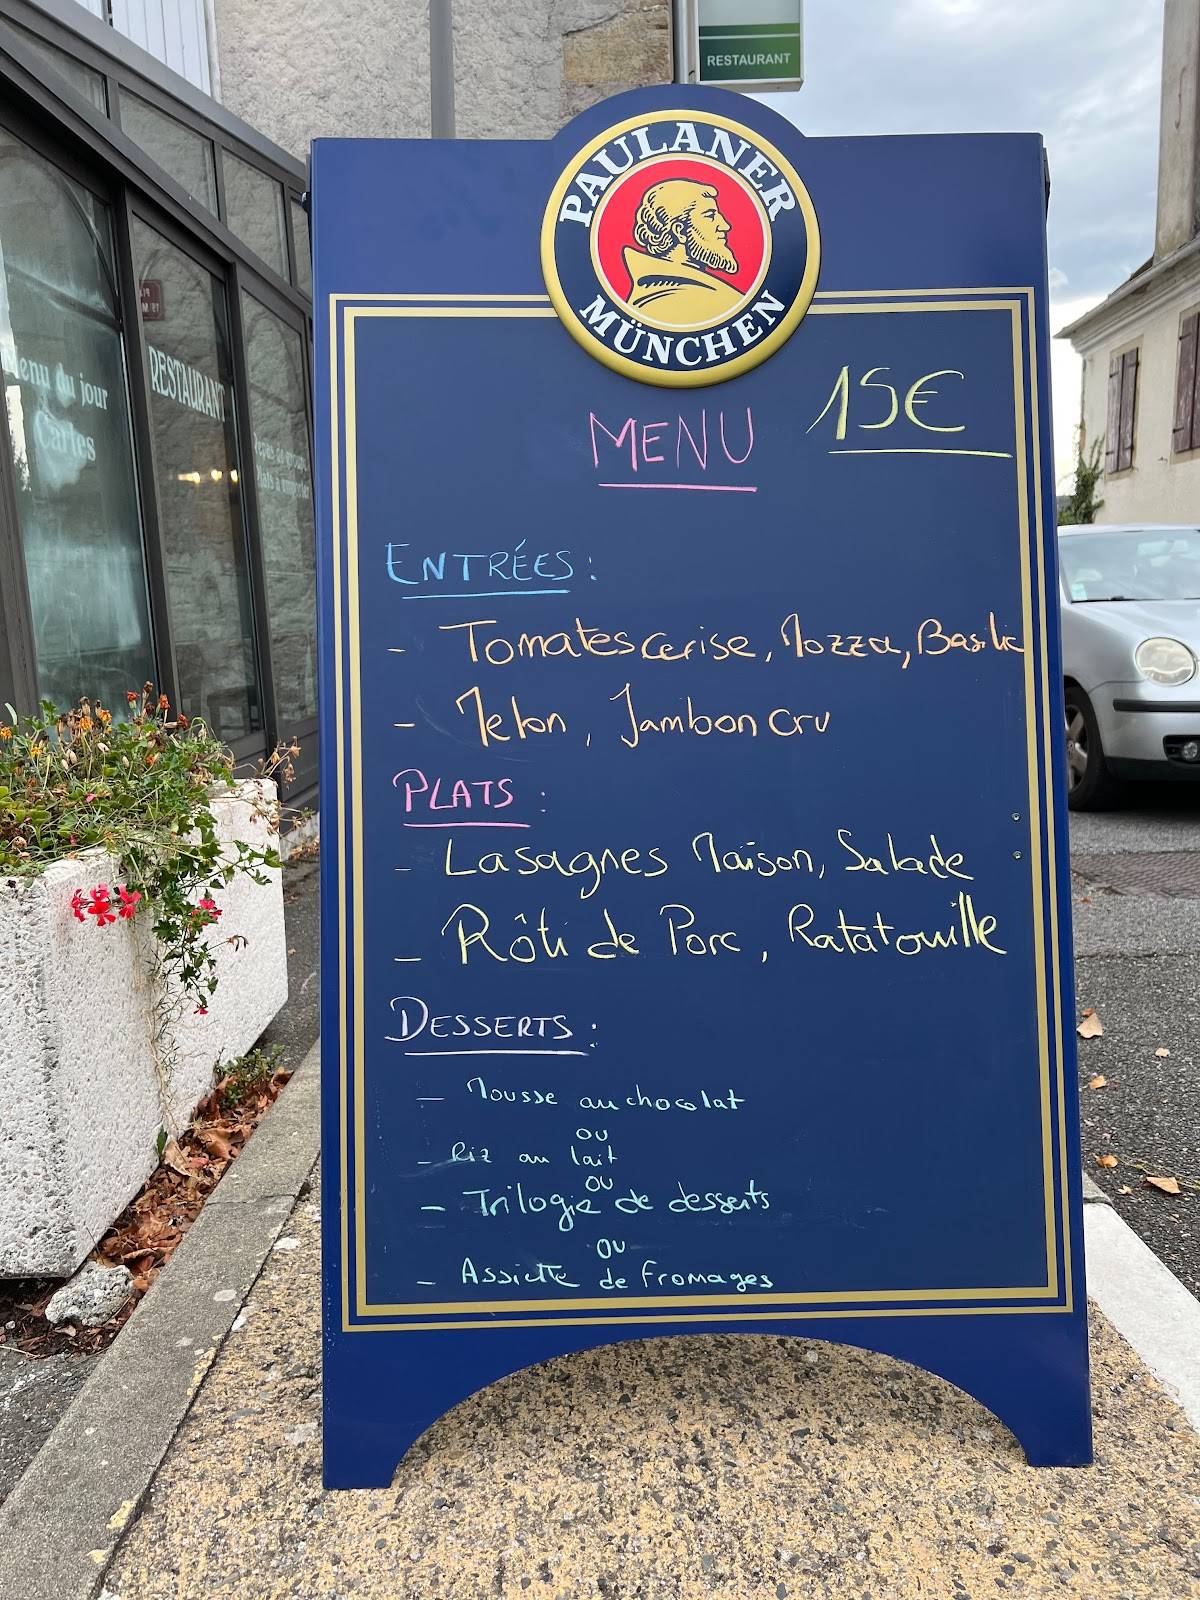 RESTAURANT
PAULANER
MÜNCHEN
15€
MENU
ENTRÉES :
- Tomates cerise, Mozza, Basilic
- Melon, Jambon cru
PLATS :
- Lasagnes Maison, Salade
- Rôti de Porc, Ratatouille
DESSERTS :
- Mousse au chocolat
ou
- Riz au lait
ou
- Trilogie de desserts
ou
- Assiette de fromages
Menu du jour
Cartes
RESTAURANT